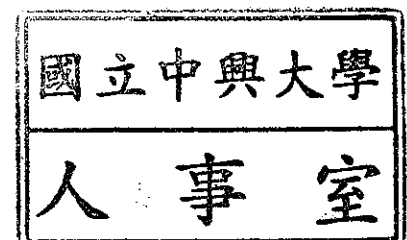 國立中興大學
人事室